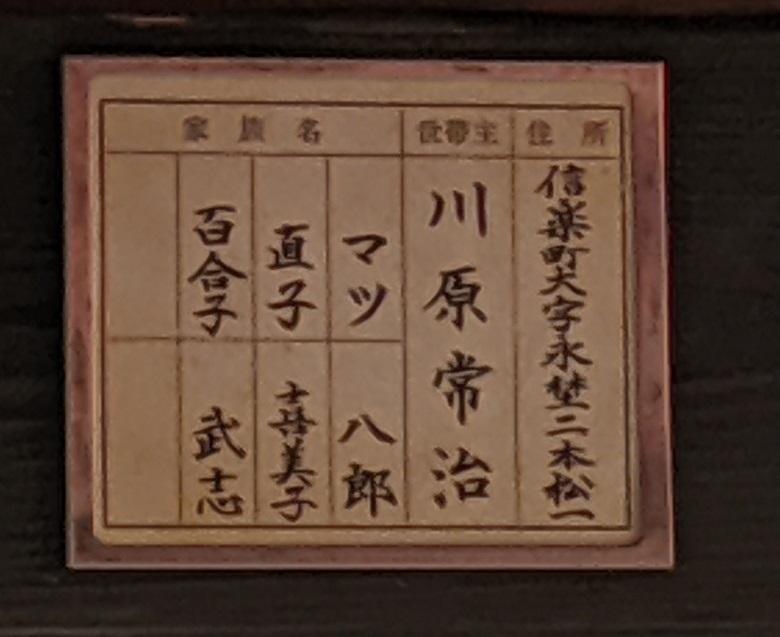 住所
世帯主
家族名
信楽町大字永埜二本松一
川原常治
マツ
八郎
直子
喜美子
百合子
武志